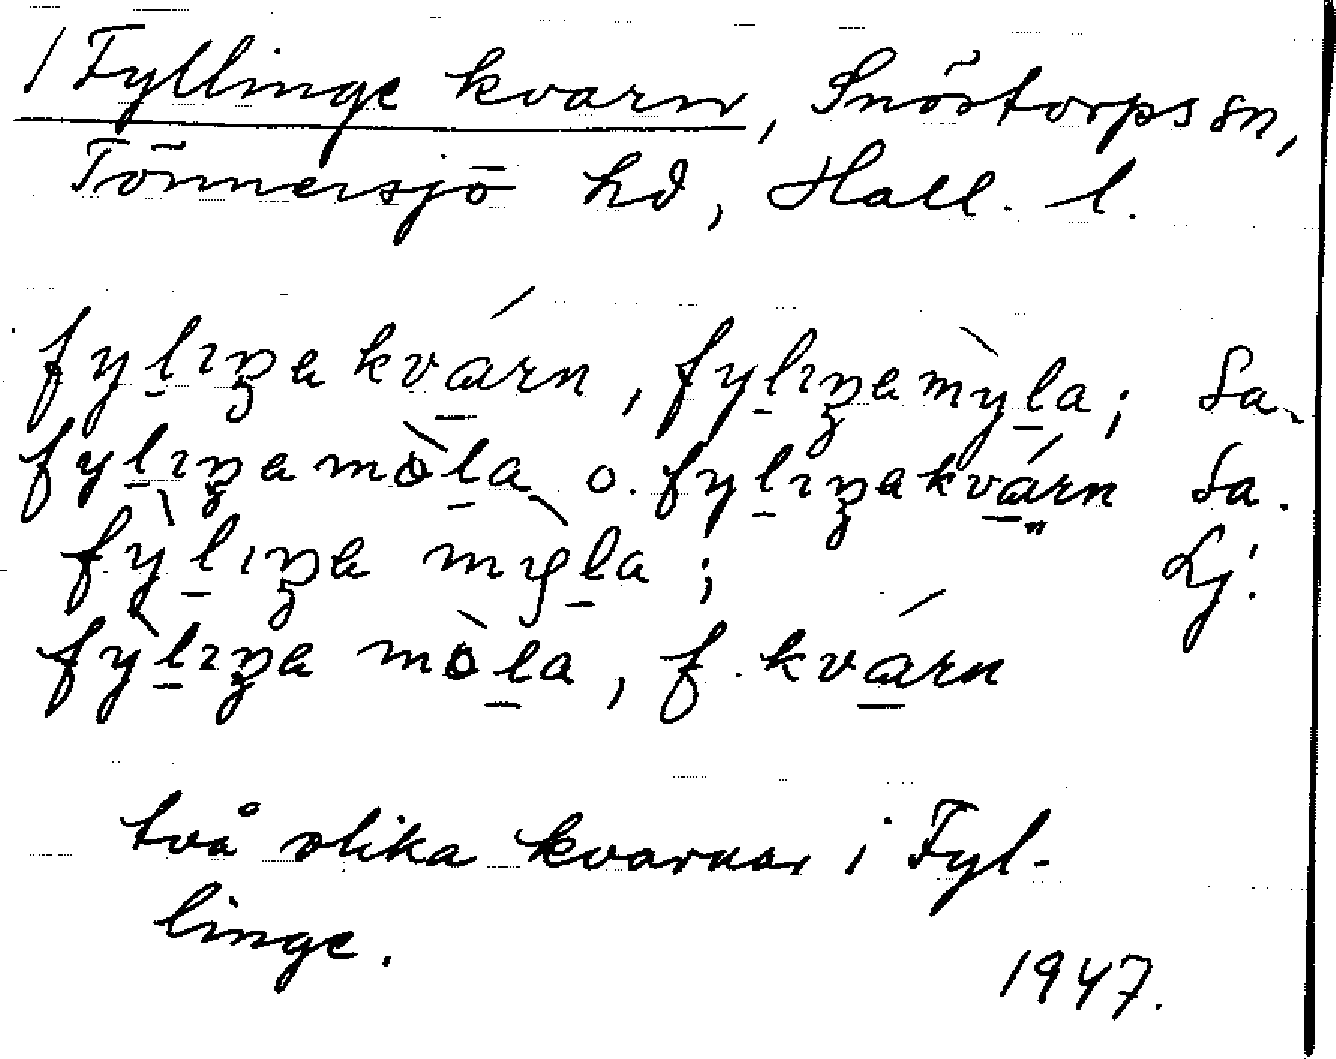 / Fyllinge kvarn, Snöstorps sn,
Tönnersjö hd, Hall. l.
fylıŋakvárn, fylıŋamỳla; Sa.
fylıŋamòla o. fylıŋakvárn Sa.
fỳlıŋa mỳla; Lj.
fỳlıŋa mòla, f. kvárn
två olika kvarnar i Fyl-
linge.
1947.